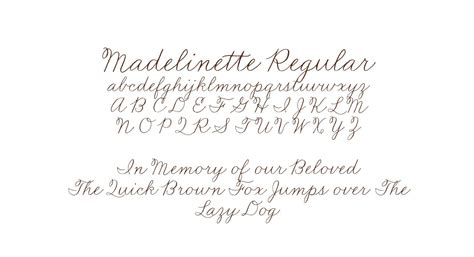 Madelinette Regular
abcdefghijklmnopqrstuvwxyz
A B C D E F G H I J K L M
N O P Q R S T U V W X Y Z
In Memory of our Beloved
The Quick Brown Fox Jumps over The
Lazy Dog